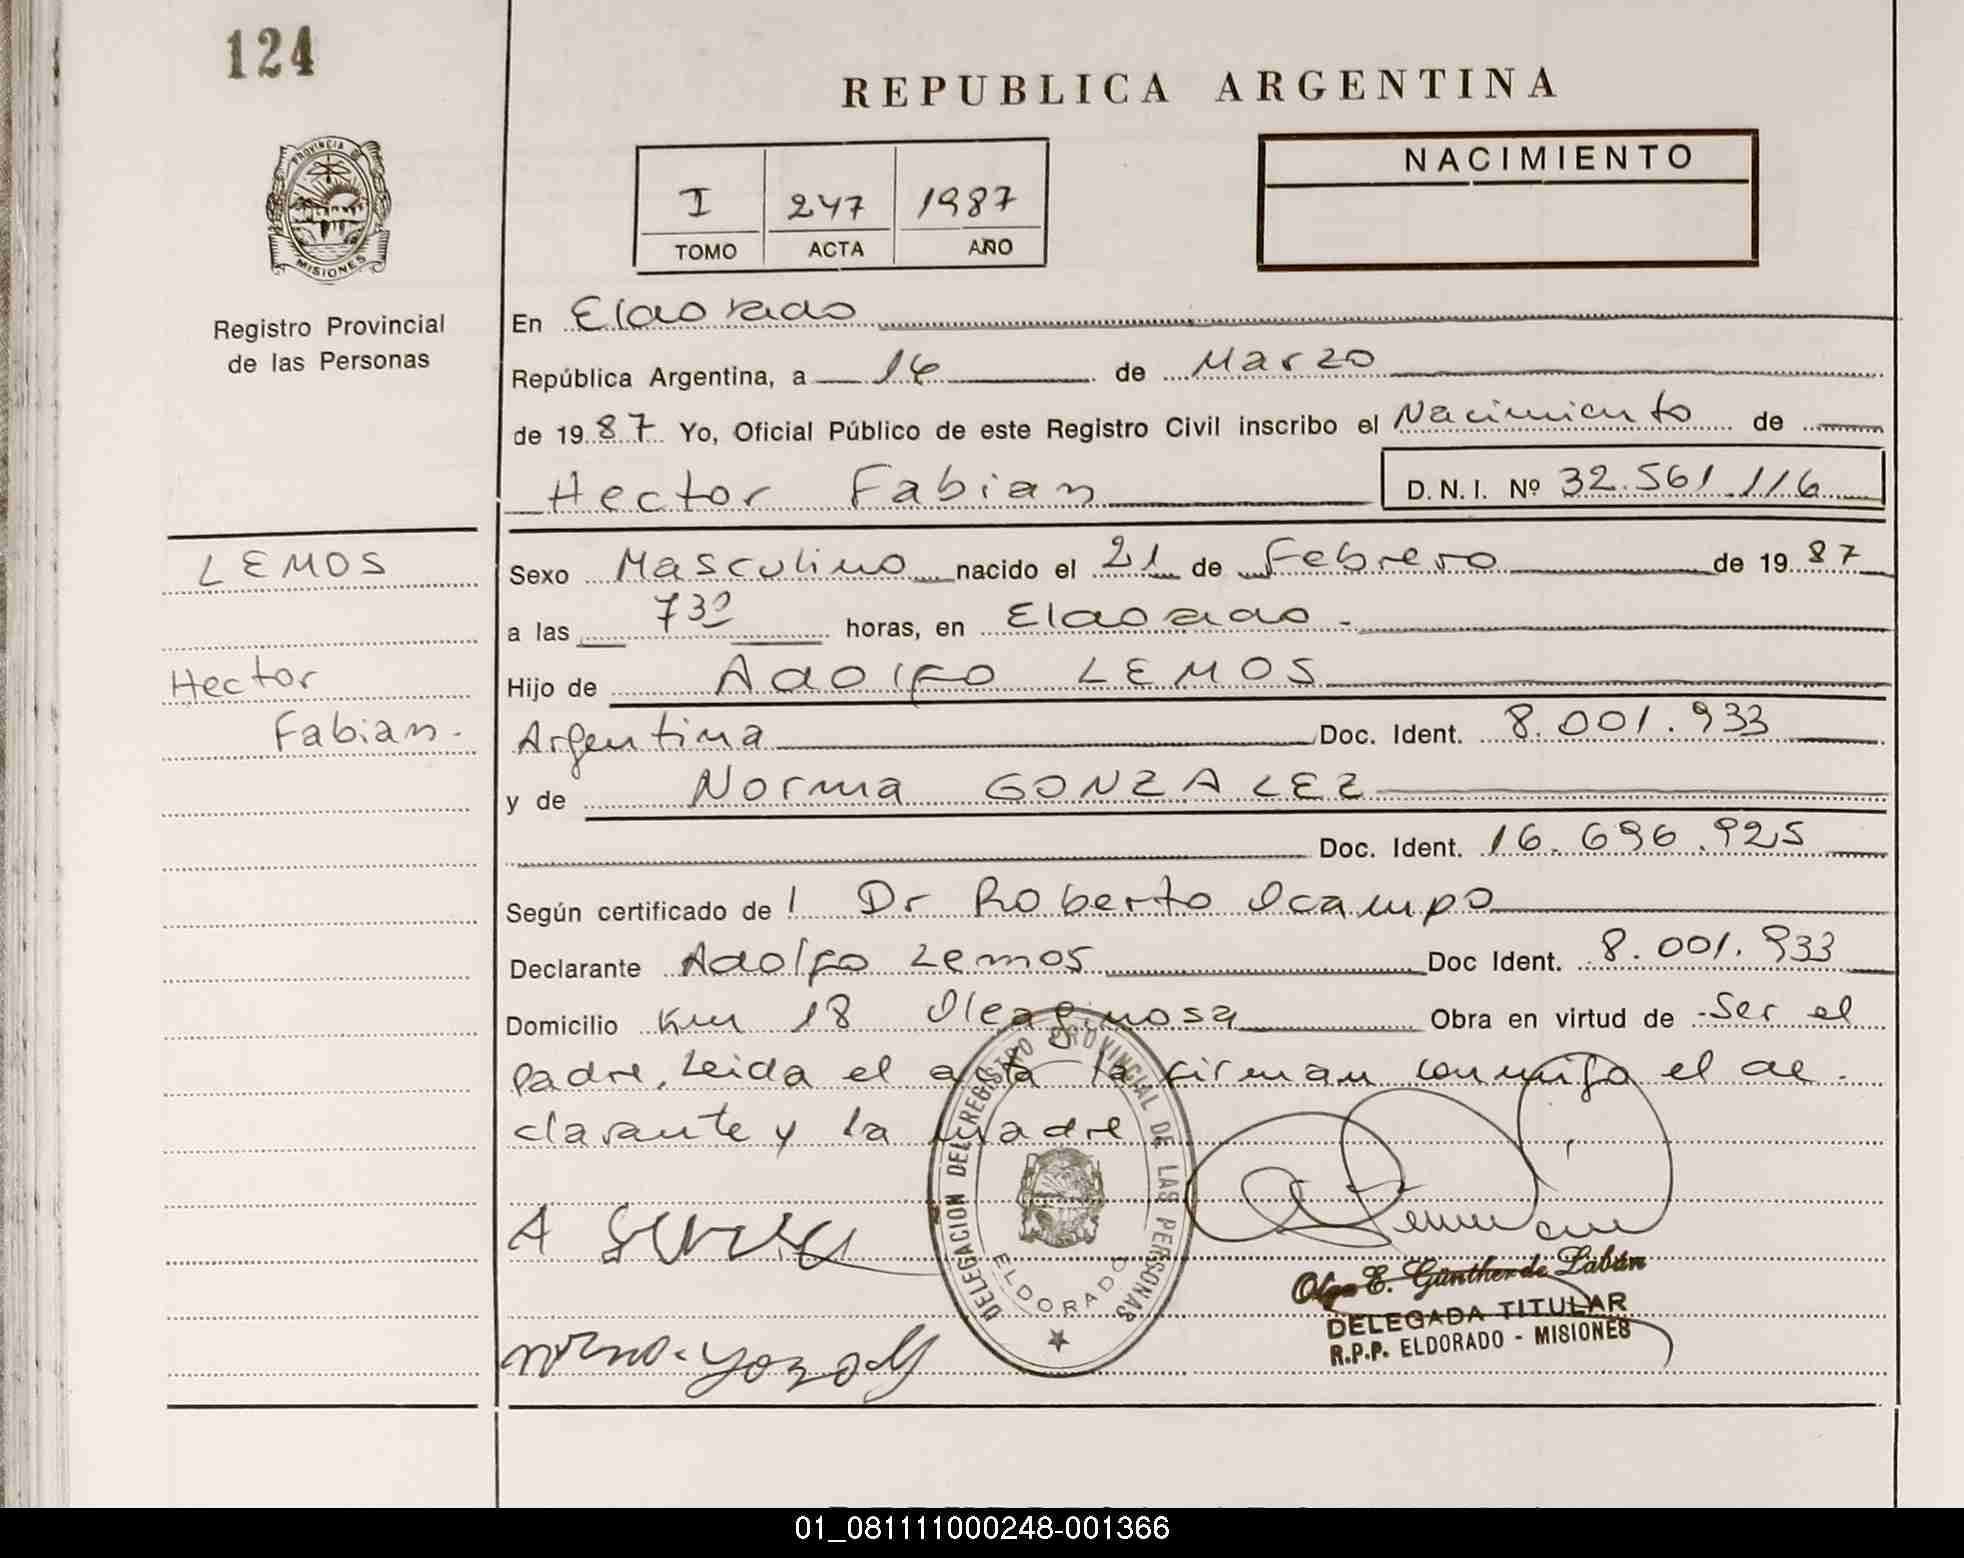 124
REPUBLICA ARGENTINA
PROVINCIA DE
MISIONES
Registro Provincial
de las Personas
I 247 1987
TOMO ACTA AÑO
NACIMIENTO
En Eldorado
República Argentina, a 16 de Marzo
de 1987 Yo, Oficial Público de este Registro Civil inscribo el Nacimiento de
Hector Fabian D.N.I. Nº 32.561.116
LEMOS
Hector
Fabian.
Sexo Masculino nacido el 21 de Febrero de 1987
a las 730 horas, en Eldorado.
Hijo de Adolfo LEMOS
Argentina Doc. Ident. 8.001.933
y de Norma GONZALEZ
Doc. Ident. 16.696.925
Según certificado del Dr Roberto Ocampo
Declarante Adolfo Lemos Doc Ident. 8.001.933
Domicilio Km 18 Oleaginosa Obra en virtud de ser el
padre, Leida el acta la firman conmigo el de-
clarante y la madre
DELEGACION DEL REGISTRO PROVINCIAL DE LAS PERSONAS
ELDORADO
Olga E. Günther de Labán
DELEGADA TITULAR
R.P.P. ELDORADO - MISIONES
01_081111000248-001366